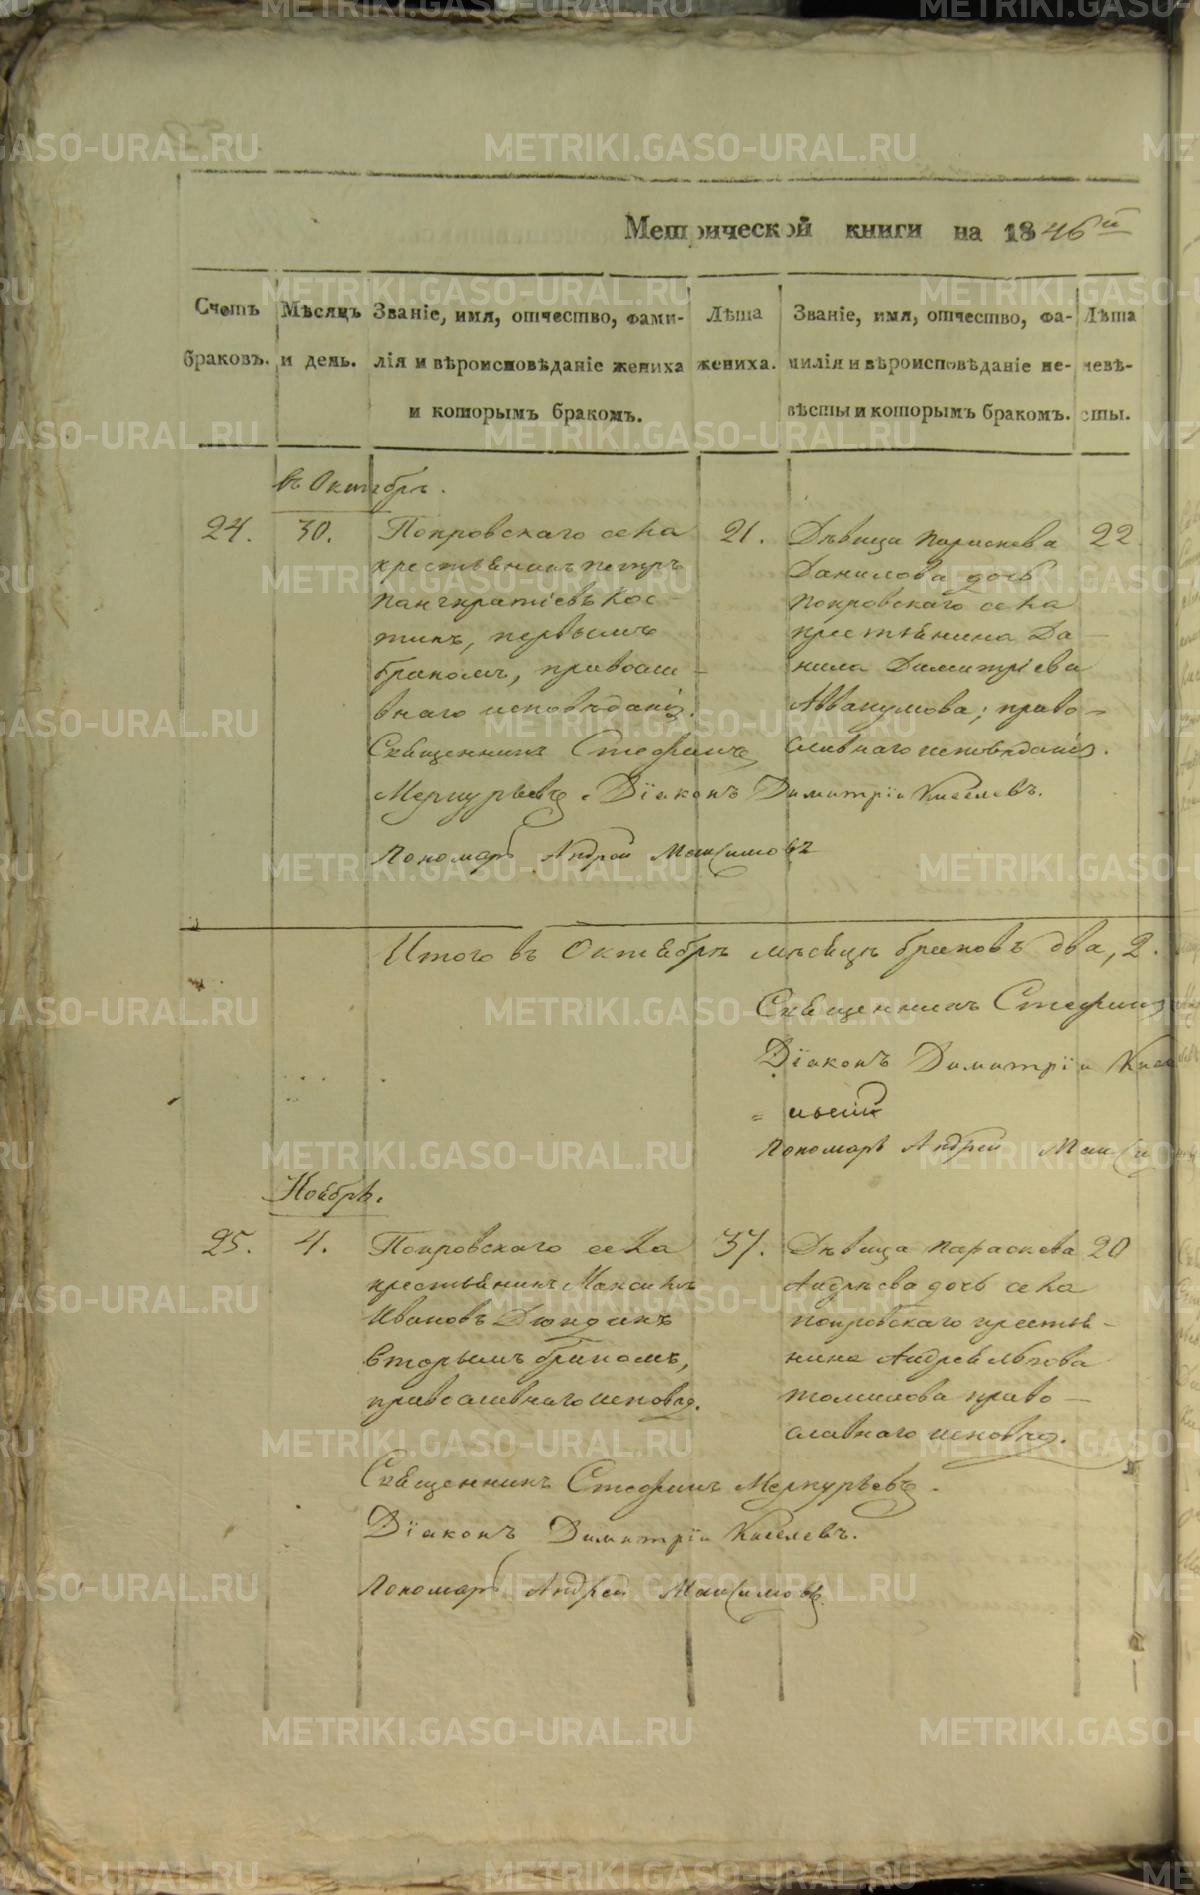 Метрической книги на 1846й
Счетъ браковъ.
Мѣсяцъ и день.
Званіе, имя, отчество, фами-
лія и вѣроисповѣданіе жениха
и которымъ бракомъ.
Лѣта жениха.
Званіе, имя, отчество, фа-
милія и вѣроисповѣданіе не-
вѣсты и которымъ бракомъ.
Лѣта невѣ-
сты.
въ Октябрѣ.
24.
30.
Покровскаго села
крестьянинъ Петръ
Панкратіевъ Кос-
тинъ, первымъ
бракомъ, правосла-
внаго исповѣданія.
21.
Дѣвица Параскева
Данилова дочь
Покровскаго села
крестьянина Да-
нила Димитріева
Аввакумова; право-
славнаго исповѣданія.
22.
Священникъ Стефанъ
Меркурьевъ. Діаконъ Димитрій Киселевъ.
Пономарь Андрей Максимовъ
Итого въ Октябрѣ мѣсяцѣ браковъ два, 2.
Священникъ Стефанъ
Діаконъ Димитрій
Пономарь Андрей
Ноябрь.
25.
4.
Покровскаго села
крестьянинъ Максимъ
Ивановъ
вторымъ бракомъ,
православнаго исповѣд.
37.
Дѣвица Параскева
Андрѣева дочь села
Покровскаго крестья-
нина Андрея Львова
Томилова право-
славнаго исповѣд.
20
Священникъ Стефанъ Меркурьевъ.
Діаконъ Димитрій Киселевъ.
Пономарь Андрей Максимовъ
METRIKI.GASO-URAL.RU